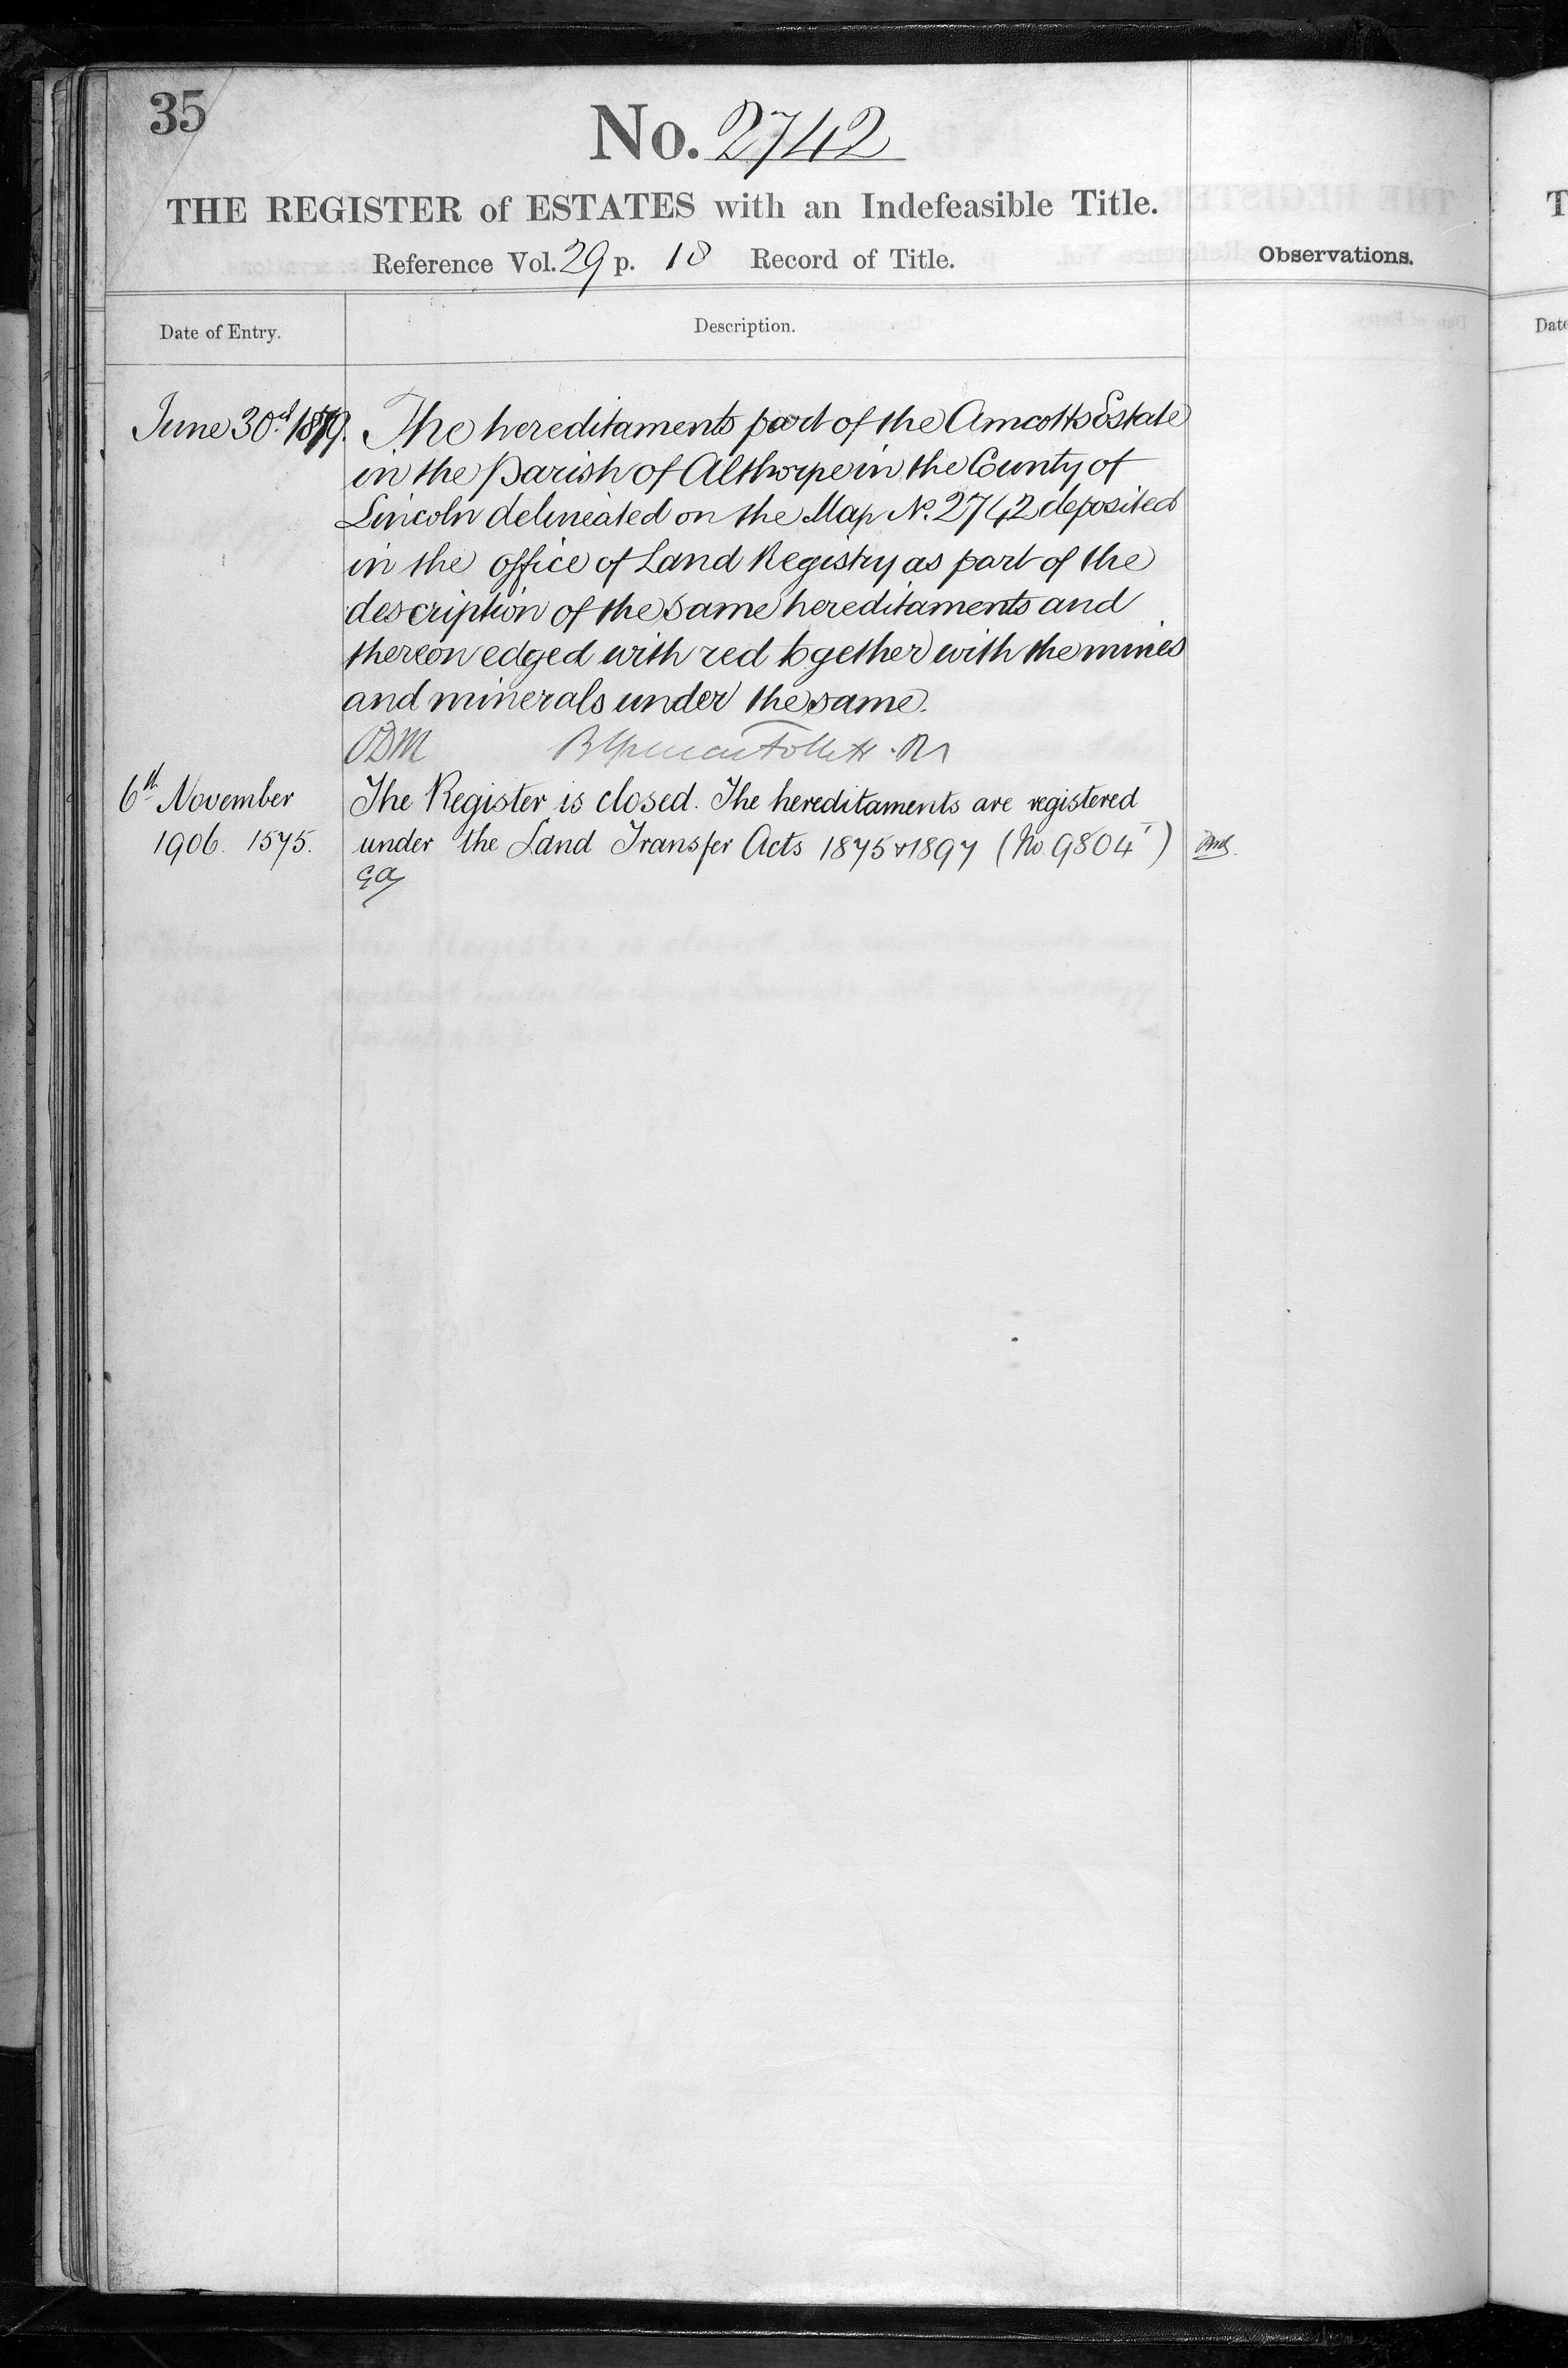 35
No. 2742
THE REGISTER of ESTATES with an Indefeasible Title.
Reference Vol. 29 p. 18 Record of Title.
Observations.
Date of Entry.
Description.
June 30th 1879. The hereditaments part of the Amcotts Estate
in the Parish of Althorpe in the County of
Lincoln delineated on the Map No. 2742 deposited
in the office of Land Registry as part of the
description of the same hereditaments and
thereon edged with red together with the mines
and minerals under the same.
Follett R
6th November The Register is closed. The hereditaments are registered
1906. 1575. under the Land Transfer Acts 1875 & 1897 (No. 9804)